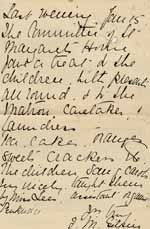 Last evening Jan 15
The Committee of St
Margaret's Home
gave a treat to the
children, with presents
all round, & to the
Matron, Caretaker &
Laundress
Tea, cakes, oranges
sweets, crackers &c
The children sang carols
very nicely, taught them
by Miss Lees assistant